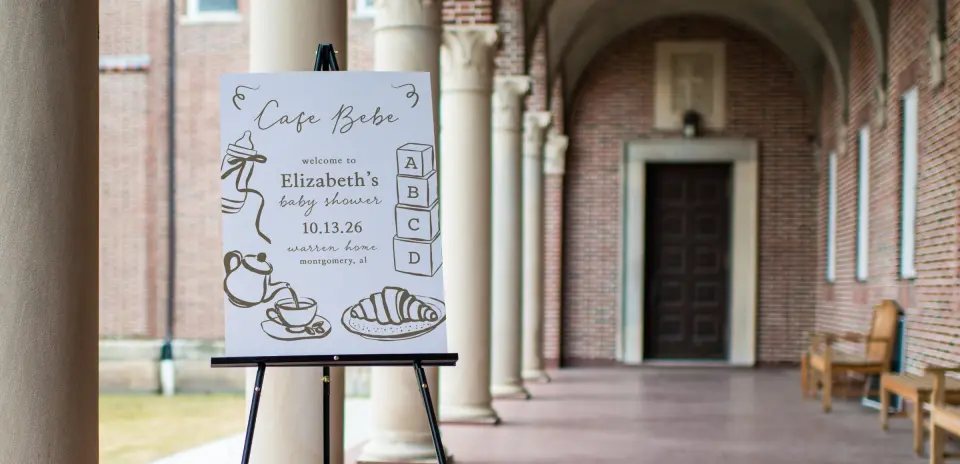 Cafe Bebe
welcome to
Elizabeth's
baby shower
10.13.26
warren home
montgomery, al
A
B
C
D